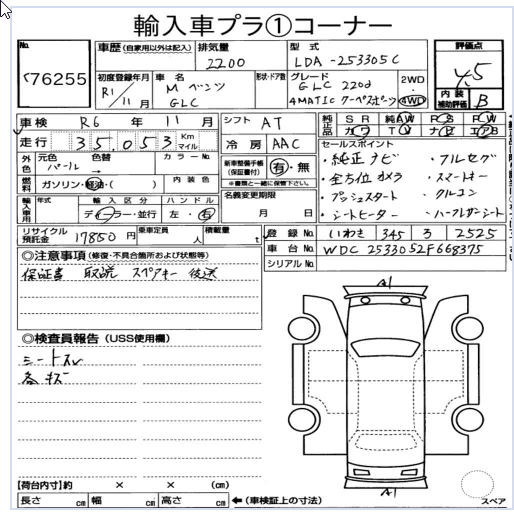 輸入車プラ①コーナー
No.
76255
車歴 (自家用以外は記入)
排気量
2200
型式
LDA-253305C
評価点
4.5
初度登録年月
R1/11月
車名
Mベンツ
GLC
形状・ドア数
グレード
GLC 220d
4MATIC クーペスポーツ
2WD
・
4WD
内装
補助評価
B
車検 R6年 11月
シフト AT
純正品
SR 純AW PS PW
カワ TV ナビ エアB
走行 35,053 Km マイル
冷房 AAC
セールスポイント
外色
元色 パール
色替 →
カラーNo.
新車整備手帳
(保証書付)
有・無
※書類と一緒に保管下さい。
・純正ナビ
・フルセグ
・全方位カメラ
・スマートキー
・プッシュスタート
・クルコン
・シートヒーター
・ハーフレザーシート
燃料
ガソリン・軽油・( )
内装色
名義変更期限
月 日
輸入車用
年式
輸入区分
ディーラー・並行
ハンドル
左・右
リサイクル
預託金
17850円
乗車定員
人
積載量
t
登録No. いわき 345 ろ 2525
車台No. WDC2533052F668375
シリアルNo.
◎注意事項 (修復・不具合箇所および状態等)
保証書 取説 スペアキー 後送
◎検査員報告 (USS使用欄)
シートスレ
各キズ
A1
A1
【荷台内寸】約 × × (cm)
長さ cm 幅 cm 高さ cm
←(車検証上の寸法)
スペア